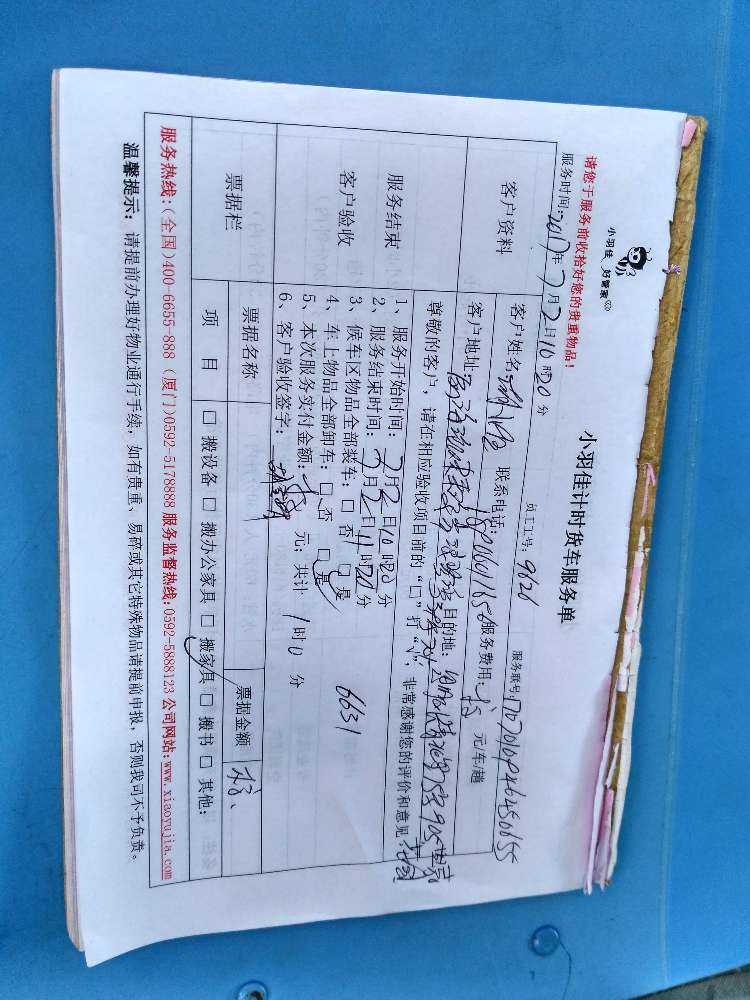 小羽佳 好管家
请您于服务前收拾好您的贵重物品!
小羽佳计时货车服务单
服务时间:2017年7月2日10时20分
员工工号: 9626
服务联号:
客户资料
客户姓名: 联系电话: 服务费用: 元/车/趟
客户地址: 目的地:
尊敬的客户，请在相应验收项目前的“□”打“√”，非常感谢您的评价和意见
服务结束
客户验收
1、服务开始时间: 7月2日10时20分
2、服务结束时间: 7月2日11时20分
3、候车区物品全部装车: □ 否 □ 是
4、车上物品全部卸车: □ 否 □ 是
5、本次服务实付金额: 元; 共计 1时0分
6631
6、客户验收签字:
票据栏
票据名称
票据金额
项 目
□ 搬设备 □ 搬办公家具 □ 搬家具 □ 搬书 □ 其他:
服务热线:(全国)400-6655-888 (厦门)0592-5178888 服务监督热线:0592-5888123 公司网站:www.xiaoyujia.com
温馨提示: 请提前办理好物业通行手续，如有贵重、易碎或其它特殊物品请提前申报，否则我司不予负责。